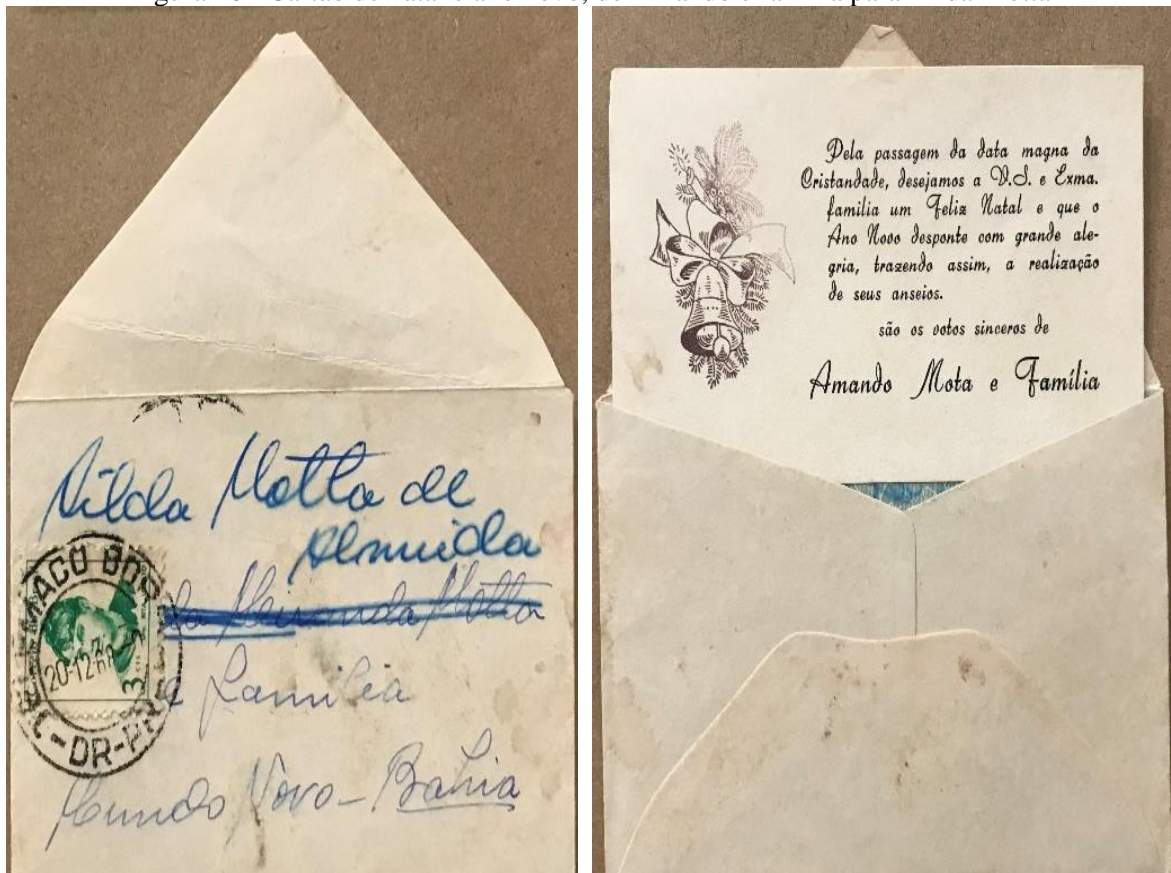 Nilda Motta de
Almeida
Miranda Motta
e Familia
Mundo Novo - Bahia
DR-PR
Pela passagem da data magna da
Cristandade, desejamos a V.S. e Exma.
familia um Feliz Natal e que o
Ano Novo desponte com grande ale-
gria, trazendo assim, a realização
de seus anseios.
são os votos sinceros de
Amando Mota e Família